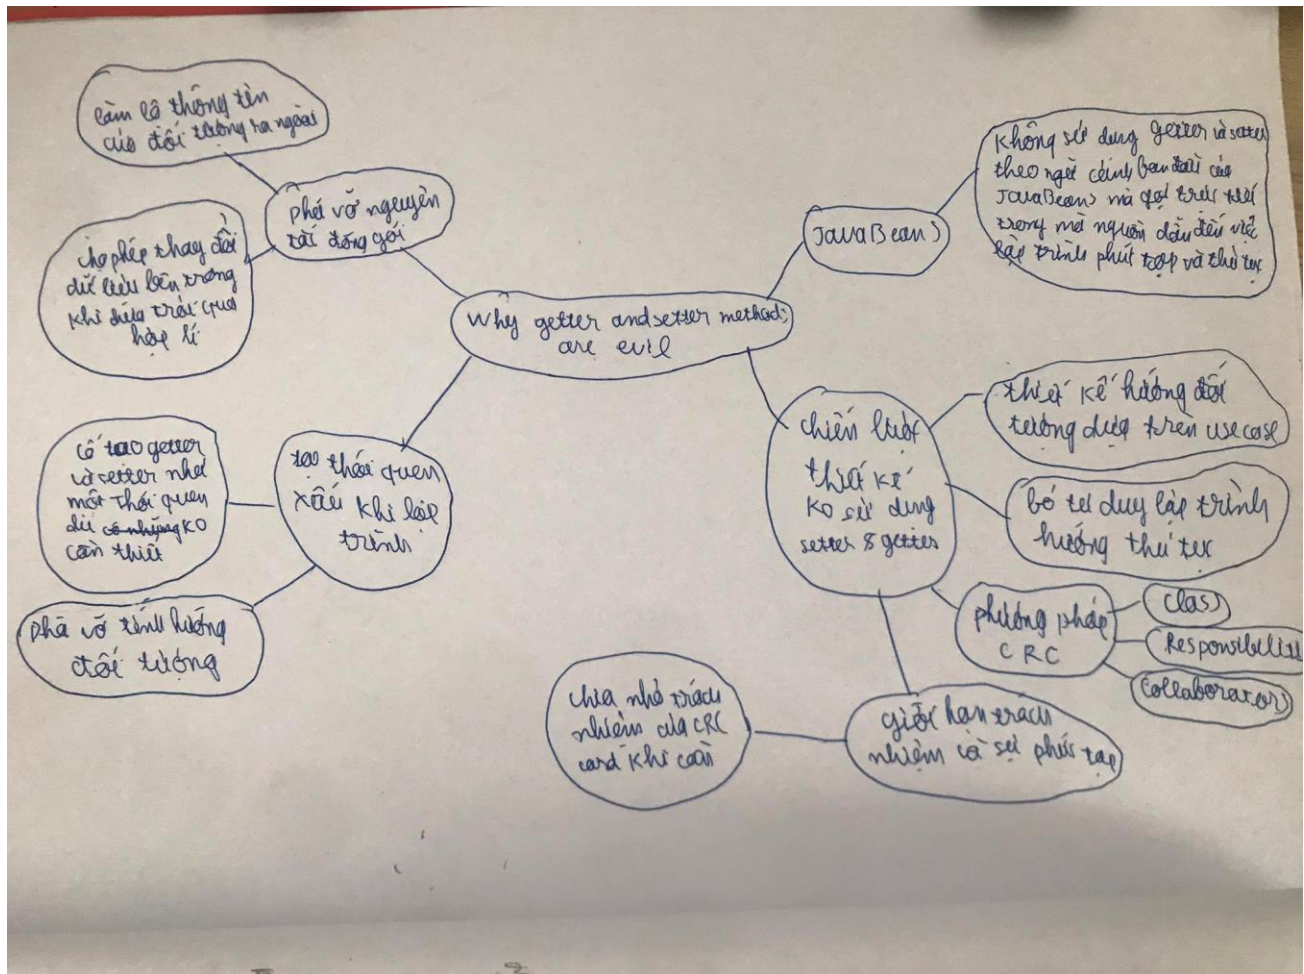 Why getter and setter methods
are evil
phá vỡ nguyên
tắc đóng gói
làm lộ thông tin
của đối tượng ra ngoài
cho phép thay đổi
dữ liệu bên trong
khi chưa trải qua
hợp lí
tạo thói quen
xấu khi lập
trình
cố tạo getter
và setter như
một thói quen
dù KO
cần thiết
phá vỡ tính hướng
đối tượng
JavaBeans
Không sử dụng getter và setter
theo ban đầu của
JavaBeans mà gọi trực tiếp
trong mã nguồn dẫn đến việc
lập trình phức tạp và thủ tục
chiến lược
thiết kế
KO sử dụng
setter & getter
thiết kế hướng đối
tượng dựa trên usecase
bỏ tư duy lập trình
hướng thủ tục
phương pháp
CRC
Class
Responsibilit
Collaborators
giới hạn trách
nhiệm và sự phức tạp
chia nhỏ trách
nhiệm của CRC
card khi cần